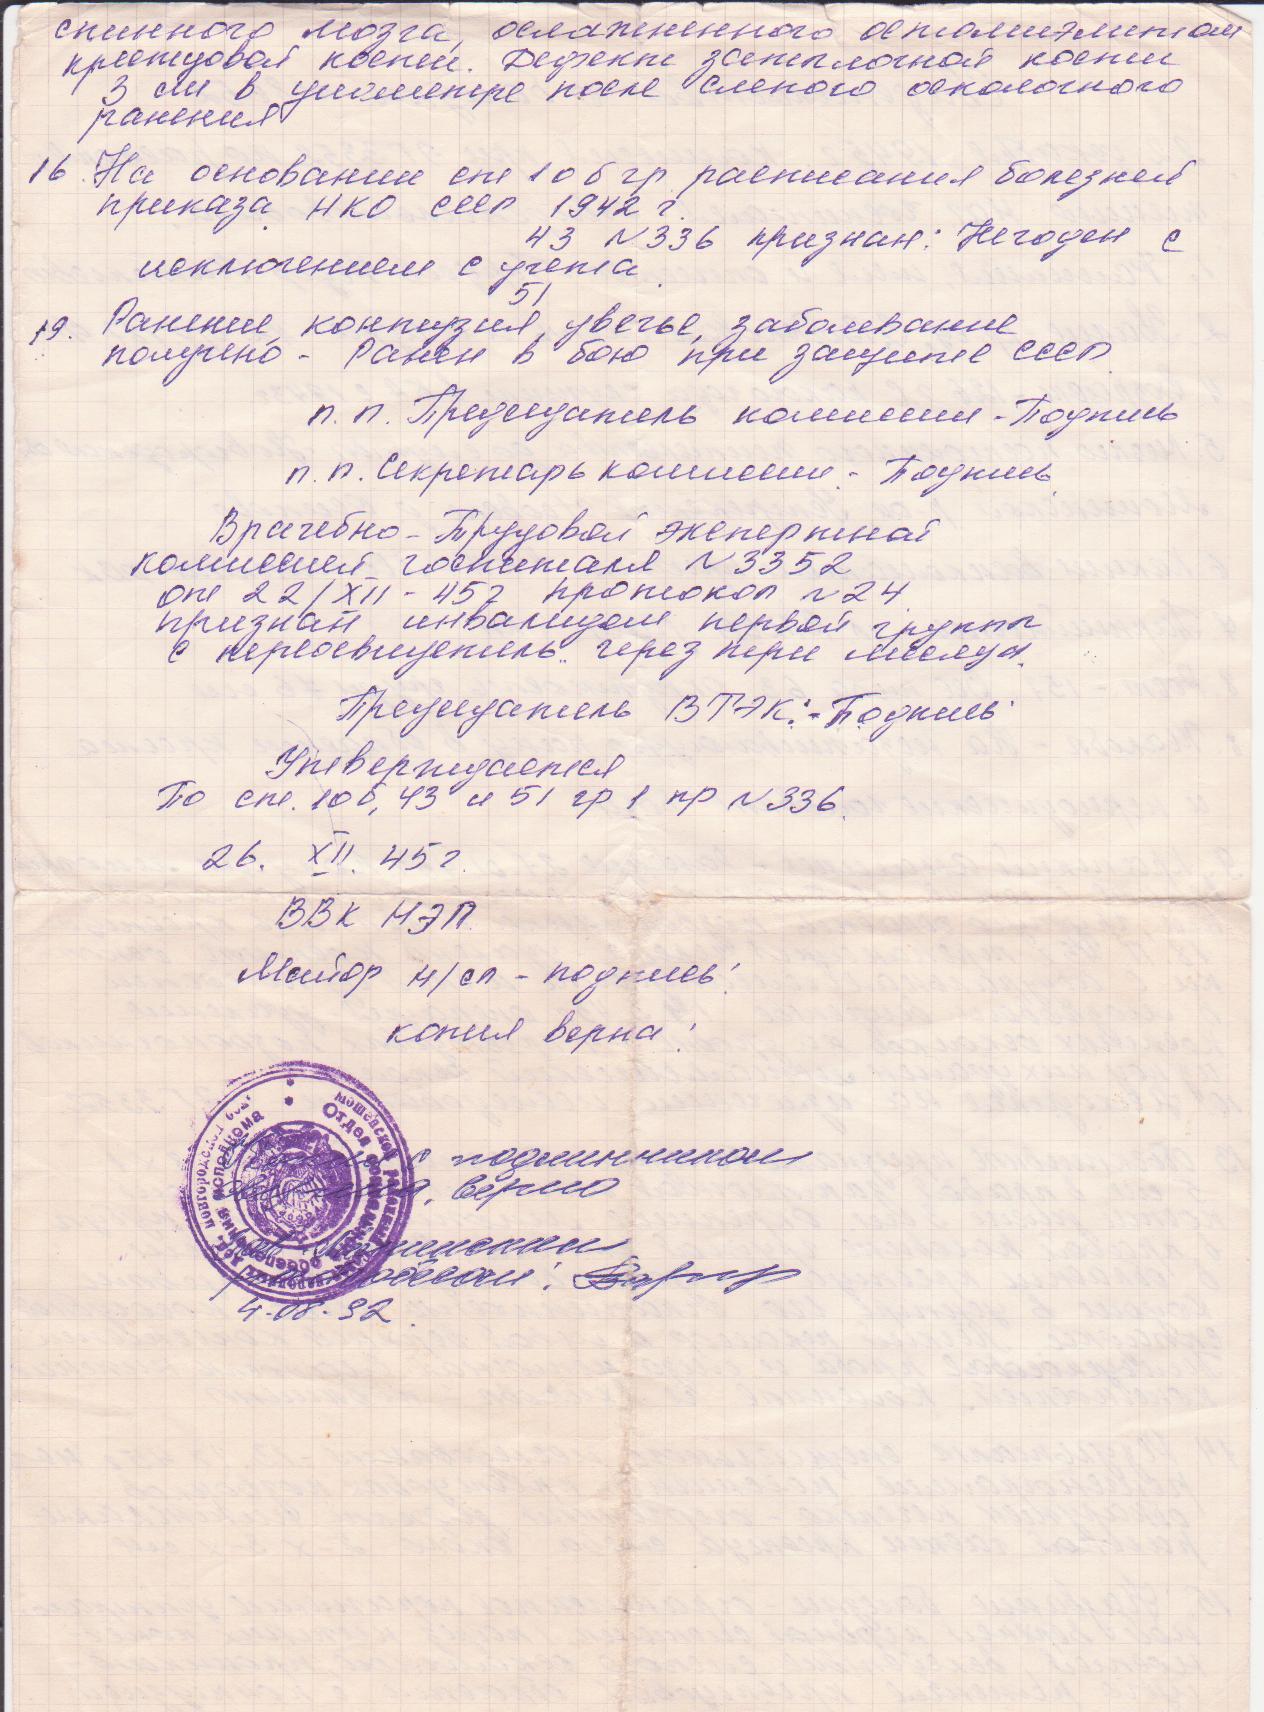 спинного мозга, осложненного остеомиэлитом
крестцовой кости. Дефект затылочной кости
3 см в диаметре после слепого осколочного
ранения
16. На основании ст 10б гр. расписания болезней
приказа НКО СССР 1942 г.
43 N 336 признан: Не годен с
исключением с учета.
51
19. Ранение, контузия, увечье, заболевание
получено - Ранен в бою при защите СССР.
п.п. Председатель комиссии - Подпись
п.п. Секретарь комиссии - Подпись
Врачебно-Трудовой экспертной
комиссией госпиталя N 3352
от 22/XII-45г протокол N 24
признан инвалидом первой группы
с переосвидетель.. через три месяца.
Председатель ВТЭК: - Подпись
Утверждается
По ст. 10б, 43 и 51 гр 1 пр N 336.
26. XII. 45 г.
ВВК НЭП
Майор м/сл - подпись!
копия верна!
с подлинником
верно
4-08-92.
Отдел социального обеспечения исполкома
Мошенской районный новгородской обл.